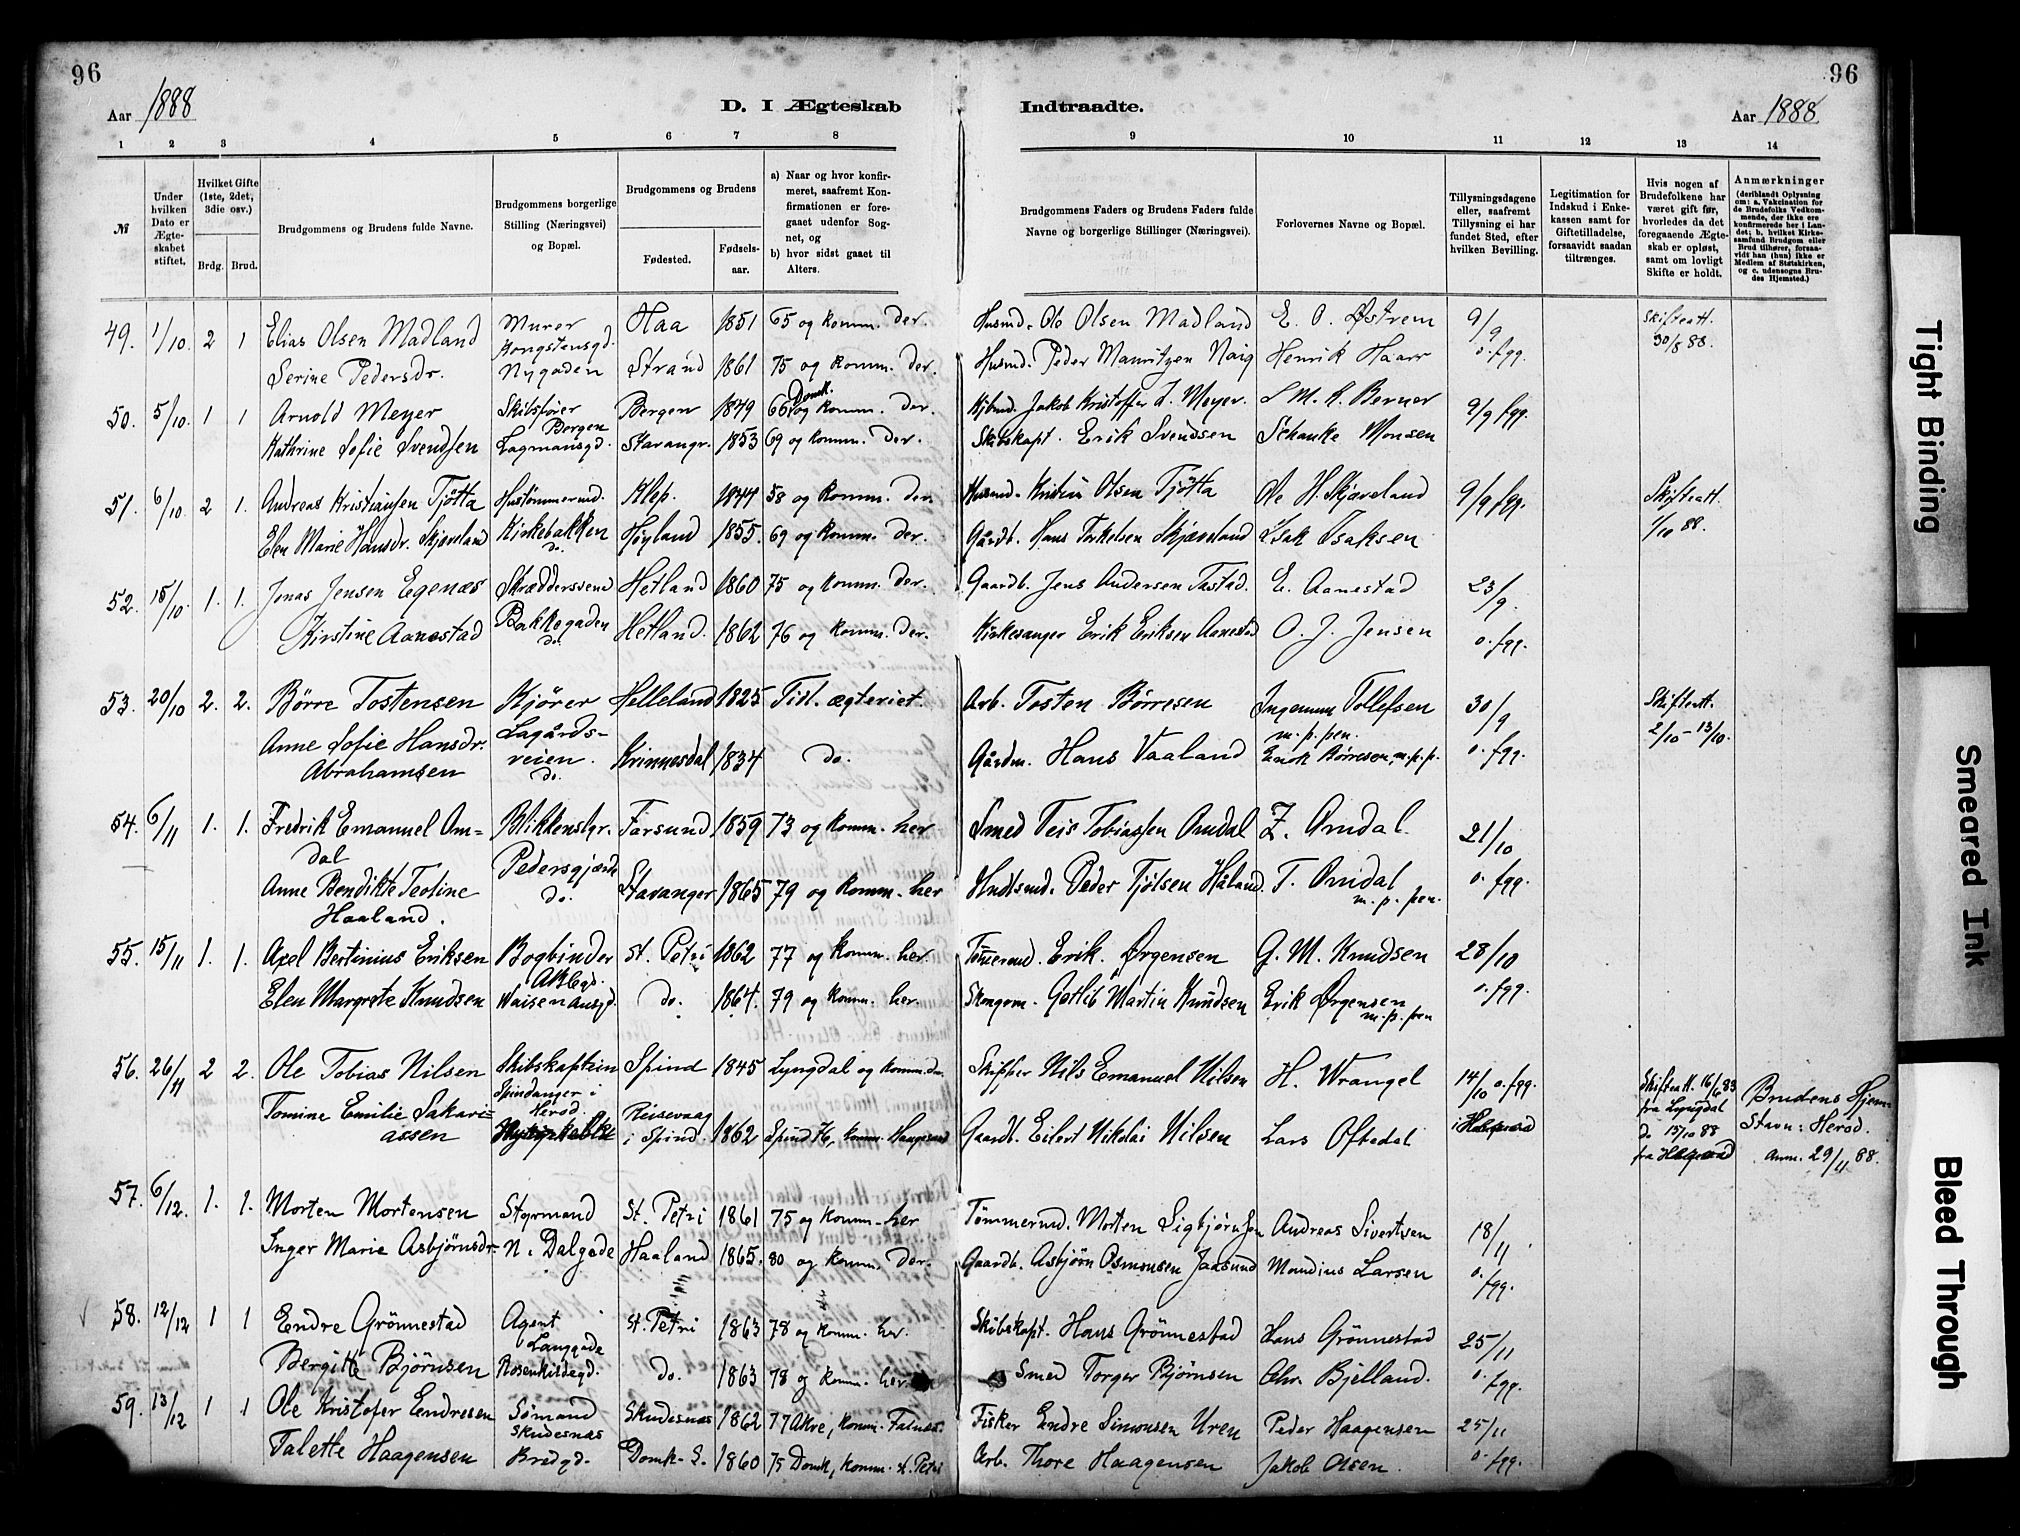 96
96
Aar 1888
D. I Ægteskab Indtraadte.
Aar 1888.
1 2 3 4 5 6 7 8 9 10 11 12 13 14
№
Under hvilken Dato er Ægteskabet stiftet.
Hvilket Gifte (1ste, 2det, 3die osv.)
Brdg. Brud.
Brudgommens og Brudens fulde Navne.
Brudgommens borgerlige Stilling (Næringsvei) og Bopæl.
Brudgommens og Brudens
Fødested.
Fødsels-aar.
a) Naar og hvor konfirmeret, saafremt Konfirmationen er foregaaet udenfor Sognet, og
b) hvor sidst gaaet til Alters.
Brudgommens Faders og Brudens Faders fulde Navne og borgerlige Stillinger (Næringsvei).
Forlovernes Navne og Bopæl.
Tillysningsdagene eller, saafremt Tillysning ei har fundet Sted, efter hvilken Bevilling.
Legitimation for Indskud i Enkekassen samt for Giftetilladelse, forsaavidt saadan tiltrænges.
Hvis nogen af Brudefolkene har været gift før, hvorledes da det foregaaende Ægteskab er opløst, samt om lovligt Skifte er holdt.
Anmærkninger (deriblandt Oplysning om: a. Vakcination for de Brudefolks Vedkommende, der ikke ere konfirmerede her i Landet; b. hvilket Kirkesamfund Brudgom eller Brud tilhører, forsaavidt han (hun) ikke er Medlem af Statskirken, og c. udensogns Brudes Hjemsted.)
49. 1/10. 2 1 Elias Olsen Madland Murer Kongstensgd. Haa 1851 65 og komm. der. Husmd. Ole Olsen Madland E. O. Østrem 9/9 Skifteatt. 30/8 88.
Serine Pedersdr. Nygaden Strand 1861 75 og komm. der. Husmd. Peder Mauritzen Naig Henrik Haar o. fgg.
50. 5/10. 1 1 Arnold Meyer Skibsfører Bergen Bergen 1849 66 Domk. og komm. der. Kjbmd. Jakob Kristoffer d. Meyer. S M. K. Berner 9/9 fgg.
Kathrine Sofie Svendsen Lagmansgd. Stavangr. 1853 69 og komm. der. Skibskapt. Erik Svendsen Schanke Monsen
51. 6/10. 2 1. Andreas Kristiansen Tjötta Hustømmermd. Klep. 1844 58 og komm. der. Husmd. Kristian Olsen Tjötta Ole H. Skjæveland 9/9 fgg. Skifteatt.
Elen Marie Hansdr. Skjæveland Kirkebakken do. Høyland 1855. 69 og komm. der. Gårdb. Hans Torkelsen Skjæveland Isak Isaksen 1/10 88.
52. 15/10. 1. 1. Jonas Jensen Egenæs Skræddersvend Hetland 1860 75 og komm. der. Gaardb. Jens Andersen Tastad. E. Aanestad 23/9.
Kirstine Aanestad Bakkegaden do. Hetland. 1862 76 og komm. der. Kirkesanger Erik Eriksen Aanestad O. J. Jensen o. fgg.
53. 20/10 2. 2. Börre Tostensen Kjører Helleland 1825 Tidl. ægteviet. Arb. Tosten Börresen Ingemun Tollefsen m. p. pen. 30/9 Skifteatt. 2/10 - 13/10.
Anne Sofie Hansdr. Abrahamsen Lagårdsveien. do. Krinnesdal 1834 do. Gårdm. Hans Vaaland Enok Børresen, m. p. p. o. fgg.
54. 6/11 1. 1. Fredrik Emanuel Omdal Blikkenslgr. Farsund 1859 73 og komm. her Smed Teis Tobiassen Omdal Z. Omdal. 21/10
Anne Bendikte Teoline Haaland. Pedersgjærde do. Stavanger 1865 79 og komm. her Hndlsmd. Peder Tjölsen Håland. T. Omdal m. p. pen. o. fgg.
55. 15/11 1. 1. Axel Bertinius Eriksen Bogbinder St. Petri 1862 77 og komm. her. Tømmermd. Erik Ørgensen G. M. Knudsen 28/10
Elen Margrete Knudsen Waisenhusgd. do. 1864. 79 og komm. her Skongom. Gotlib Martin Knudsen Erik Ørgensen m. p. pen o. fgg.
56. 26/11 2 2. Ole Tobias Nilsen Skibskaptein Spindanger i Herod. Spind 1845 Lyngdal og komm. der. Skipper Nils Emanuel Nilsen H. Wrangel 14/10 o. fgg. Skifteatt. 16/6 83 fra Lyngdal do 15/10 88 fra Brudens Hjem-
Tomine Emilie Sakariassen i Spind. 1862 Spind 76, komm. Gaardb. Eilert Nikolai Nilsen Lars Oftedal Stavn: Herod. Anm. 29/11 88.
57. 6/12. 1. 1. Morten Mortensen Styrmand St. Petri 1861 75 og komm. her Tömmermd. Morten Sigbjørnsen Andreas Sivertsen 18/11.
Inger Marie Asbjørnsdr. N. Dalgade Haaland 1865. 80 og komm. der. Gaardb. Asbjørn Osmonsen Jaasund Mandius Larsen o. fgg.
58. 12/12 1 1 Endre Grönnestad Agent Langgade St. Petri 1863 78 og komm. her. Skibskapt. Hans Grönnestad Hans Grönnestad 25/11
Bergitte Bjørnsen Rosenkildegd. do. 1863 78 og komm. her. Smed Torger Bjørnsen Chr. Bjelland. o. fgg.
59. 13/12 1 1 Ole Kristofer Endresen Sømand Skudesnæs Skudesnæs 1862 77 Akre, komm. Falnæs. Fisker Endre Simonsen Uren Peder Haagensen 25/11
Talette Haagensen Bredgd. Domk. S. 1860 75 Domk, komm. st. Petri Arb. Thore Haagensen Jakob Olsen. o. fgg.
Tight Binding
Smeared Ink
Bleed Through